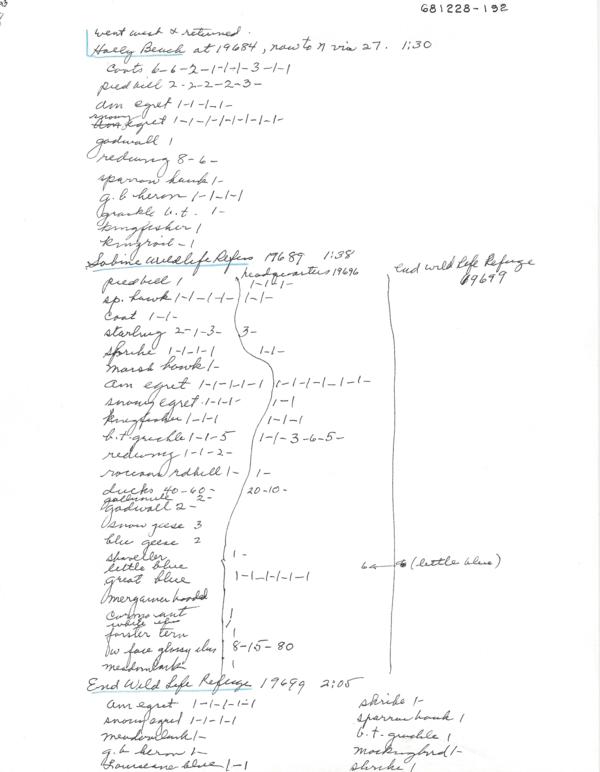 681228-192
went west & returned.
Holly Beach at 19684, now to N via 27. 1:30
Coots 6-6-2-1-1-1-3-1-1
piedbill 2-2-2-2-3-
am egret 1-1-1-1-
snowy egret 1-1-1-1-1-1-1-1-
gadwall 1
redwing 8-6-
sparrow hawk 1-
g.b heron 1-1-1-1
grackle b.t. 1-
kingfisher 1
kingrail-1
Sabine Wildlife Refuge 19689 1:38
headquarters 19696
End Wild Life Refuge
19699
piedbill 1 1-1-1-
sp. hawk 1-1-1-1-1- 1-1-
Coot 1-1-
starling 2-1-3- 3-
shrike 1-1-1-1 1-1-
marsh hawk 1-
am egret 1-1-1-1-1 1-1-1-1-1-1-1-
snowy egret 1-1-1- 1-1
kingfisher 1-1-1 1-1-1
b.t. grackle 1-1-5 1-1-3-6-5-
redwing 1-1-2-
1- 1-
ducks 40-60- 20-10-
gallinule 2-
gadwall 2-
snow geese 3
blue geese 2
shoveller 1-
little blue 6 (little blue)
great blue 1-1-1-1-1-1
merganser hooded
cormorant 1
white ibis
forster tern 1
w face glossy ibis 8-15-80
meadowlark 1
End Wild Life Refuge 19699 2:05
am egret 1-1-1-1-1
snowy egret 1-1-1-1
meadowlark 1-
g.b heron 1-
Louisiana blue 1-1
shrike 1-
sparrow hawk 1
b.t. grackle 1
mockingbird 1-
shrike 1